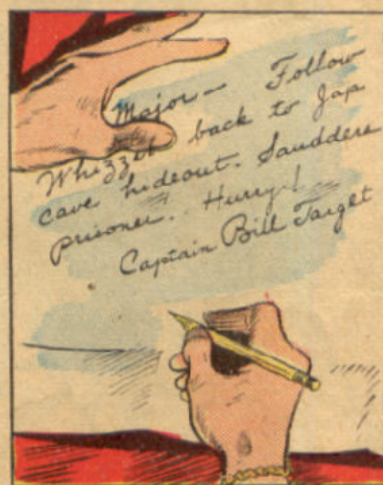 Major — Follow
Whizzer back to Jap
cave hideout. Saudders
prisoner. Hurry!
Captain Bill Target